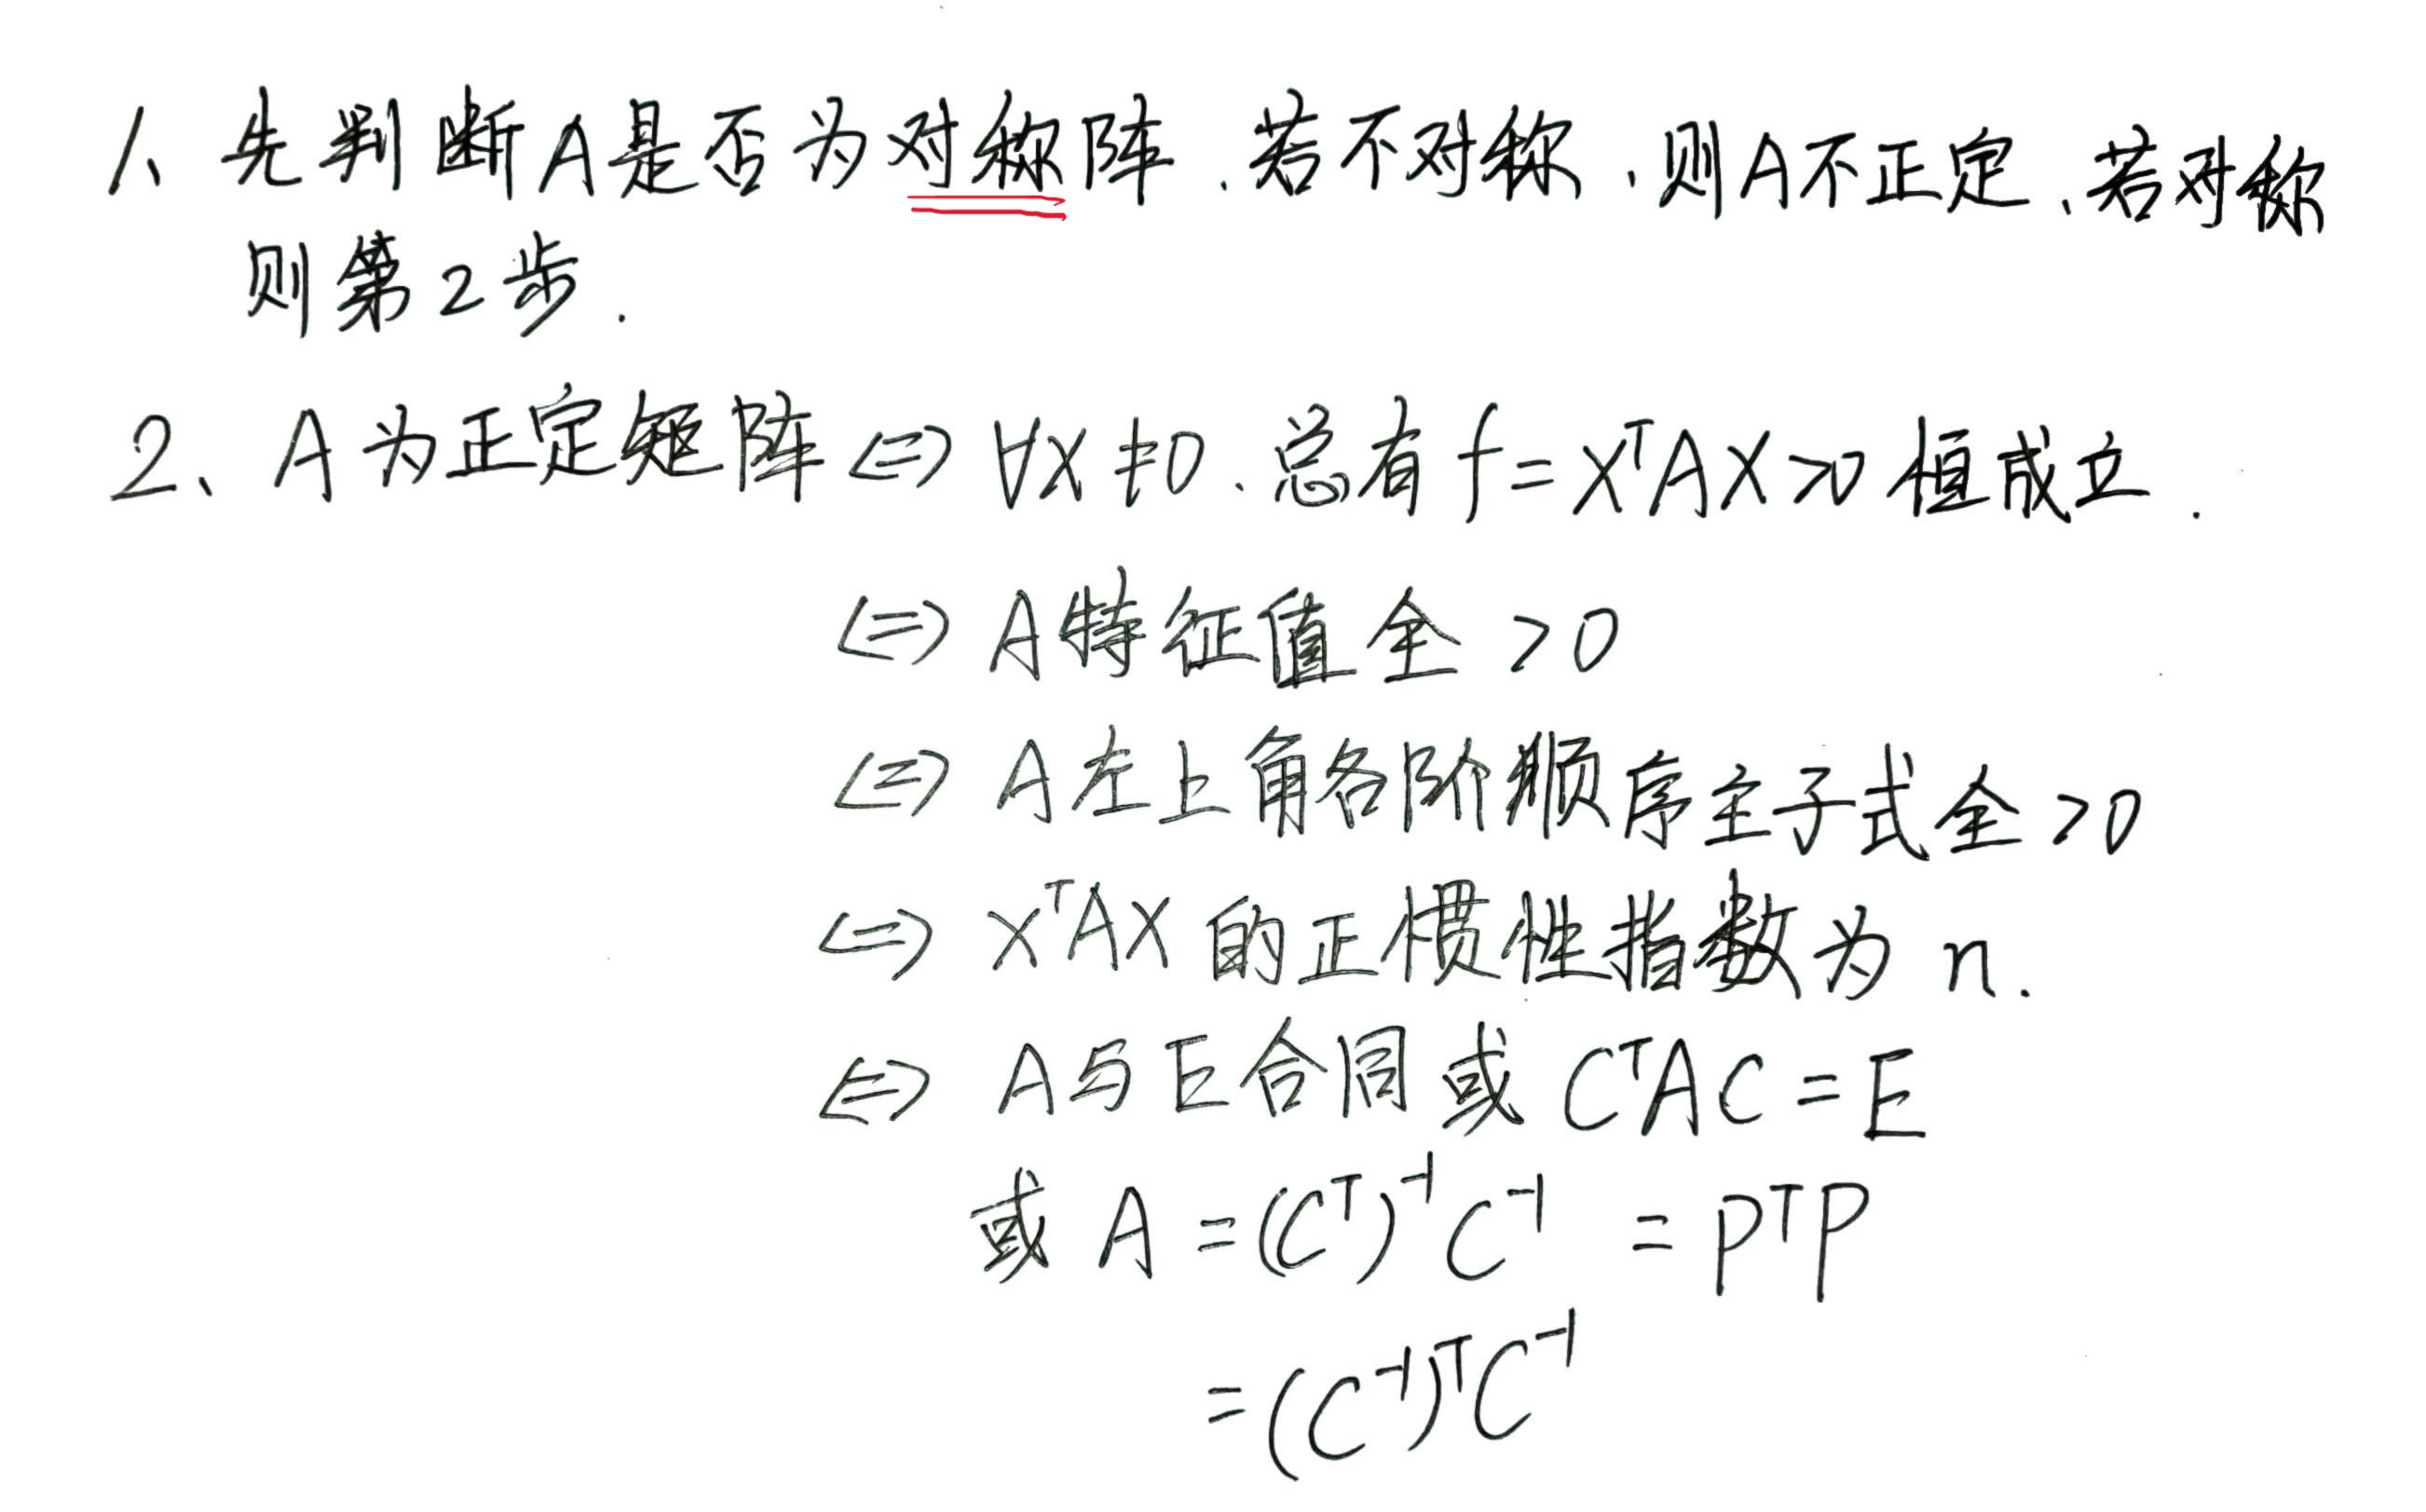 1、先判断A是否为对称阵.若不对称,则A不正定,若对称
则第2步.
2、A为正定矩阵⇔∀X≠0.总有f=XᵀAX>0恒成立.
⇔A特征值全>0
⇔A左上角各阶顺序主子式全>0
⇔XᵀAX的正惯性指数为n.
⇔A与E合同或CᵀAC=E
或A=(Cᵀ)⁻¹C⁻¹=PᵀP
=(C⁻¹)ᵀC⁻¹